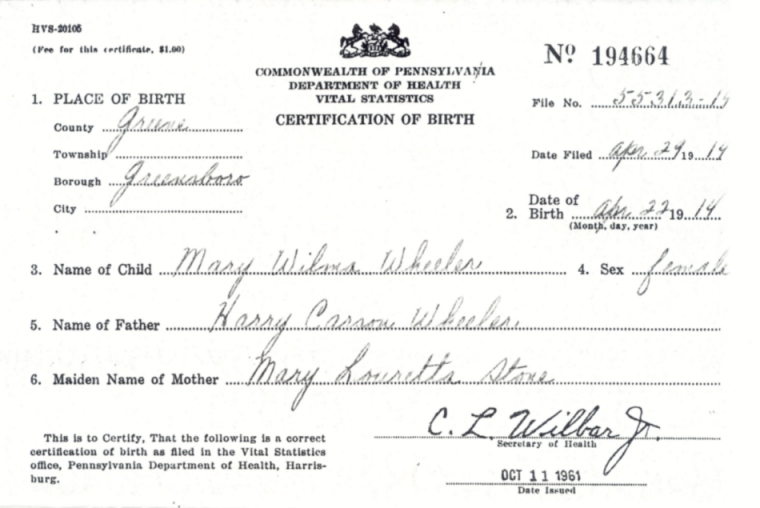 HVS-20105
(Fee for this certificate, $1.00)
COMMONWEALTH OF PENNSYLVANIA
DEPARTMENT OF HEALTH
VITAL STATISTICS
CERTIFICATION OF BIRTH
No 194664
1. PLACE OF BIRTH
County Greene
Township
Borough Greensboro
City
File No. 55313-14
Date Filed Apr 29 19 14
2. Date of Birth Apr 22 19 14
(Month, day, year)
3. Name of Child Mary Wilma Wheeler
4. Sex female
5. Name of Father Harry Carson Wheeler
6. Maiden Name of Mother Mary Louretta Stone
This is to Certify, That the following is a correct
certification of birth as filed in the Vital Statistics
office, Pennsylvania Department of Health, Harris-
burg.
C. L. Wilbar Jr.
Secretary of Health
OCT 11 1961
Date Issued